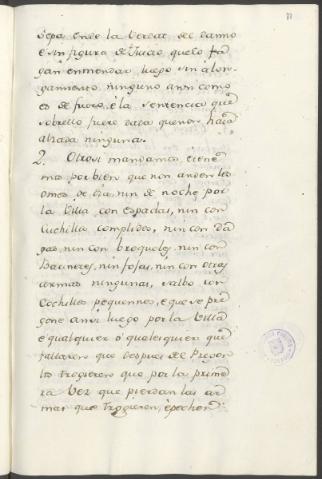 sepa ende la verdat del danno
é sin figura de Juicio quelo fa-
gan enmendar luego sin alon-
gamiento ninguno ansi como
es de fuero, é la sentencia que
sobrello fuere dada que non haia
alzada ninguna.
2. Otrosi mandamos, é tiene
ma por bien que non anden los
omes de dia nin de noche por
la Villa con espadas, nin con
Cuchillos complidos, nin con da-
gas, nin con broqueles, nin con
Bacinetes, nin fojas, nin con otras
armas ningunas, salbo con
Cochillos pequennos, é que se pre
gone ansi luego por la Villa
é qualquier ó qualesquier que
fallaren que despues del Pregon
los trogieren que por la prime
ra vez que pierdan las ar-
mas que trogieren, é pechen